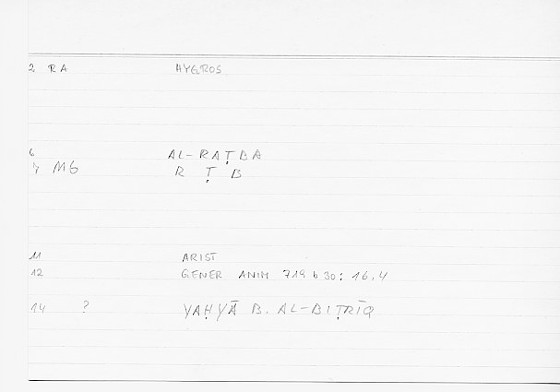 2 RA HYGROS
6 AL-RAṬBA
4 MG R Ṭ B
11 ARIST
12 GENER ANIM 719 b 30: 16.4
14 ? YAḤYĀ B. AL-BIṬRĪQ